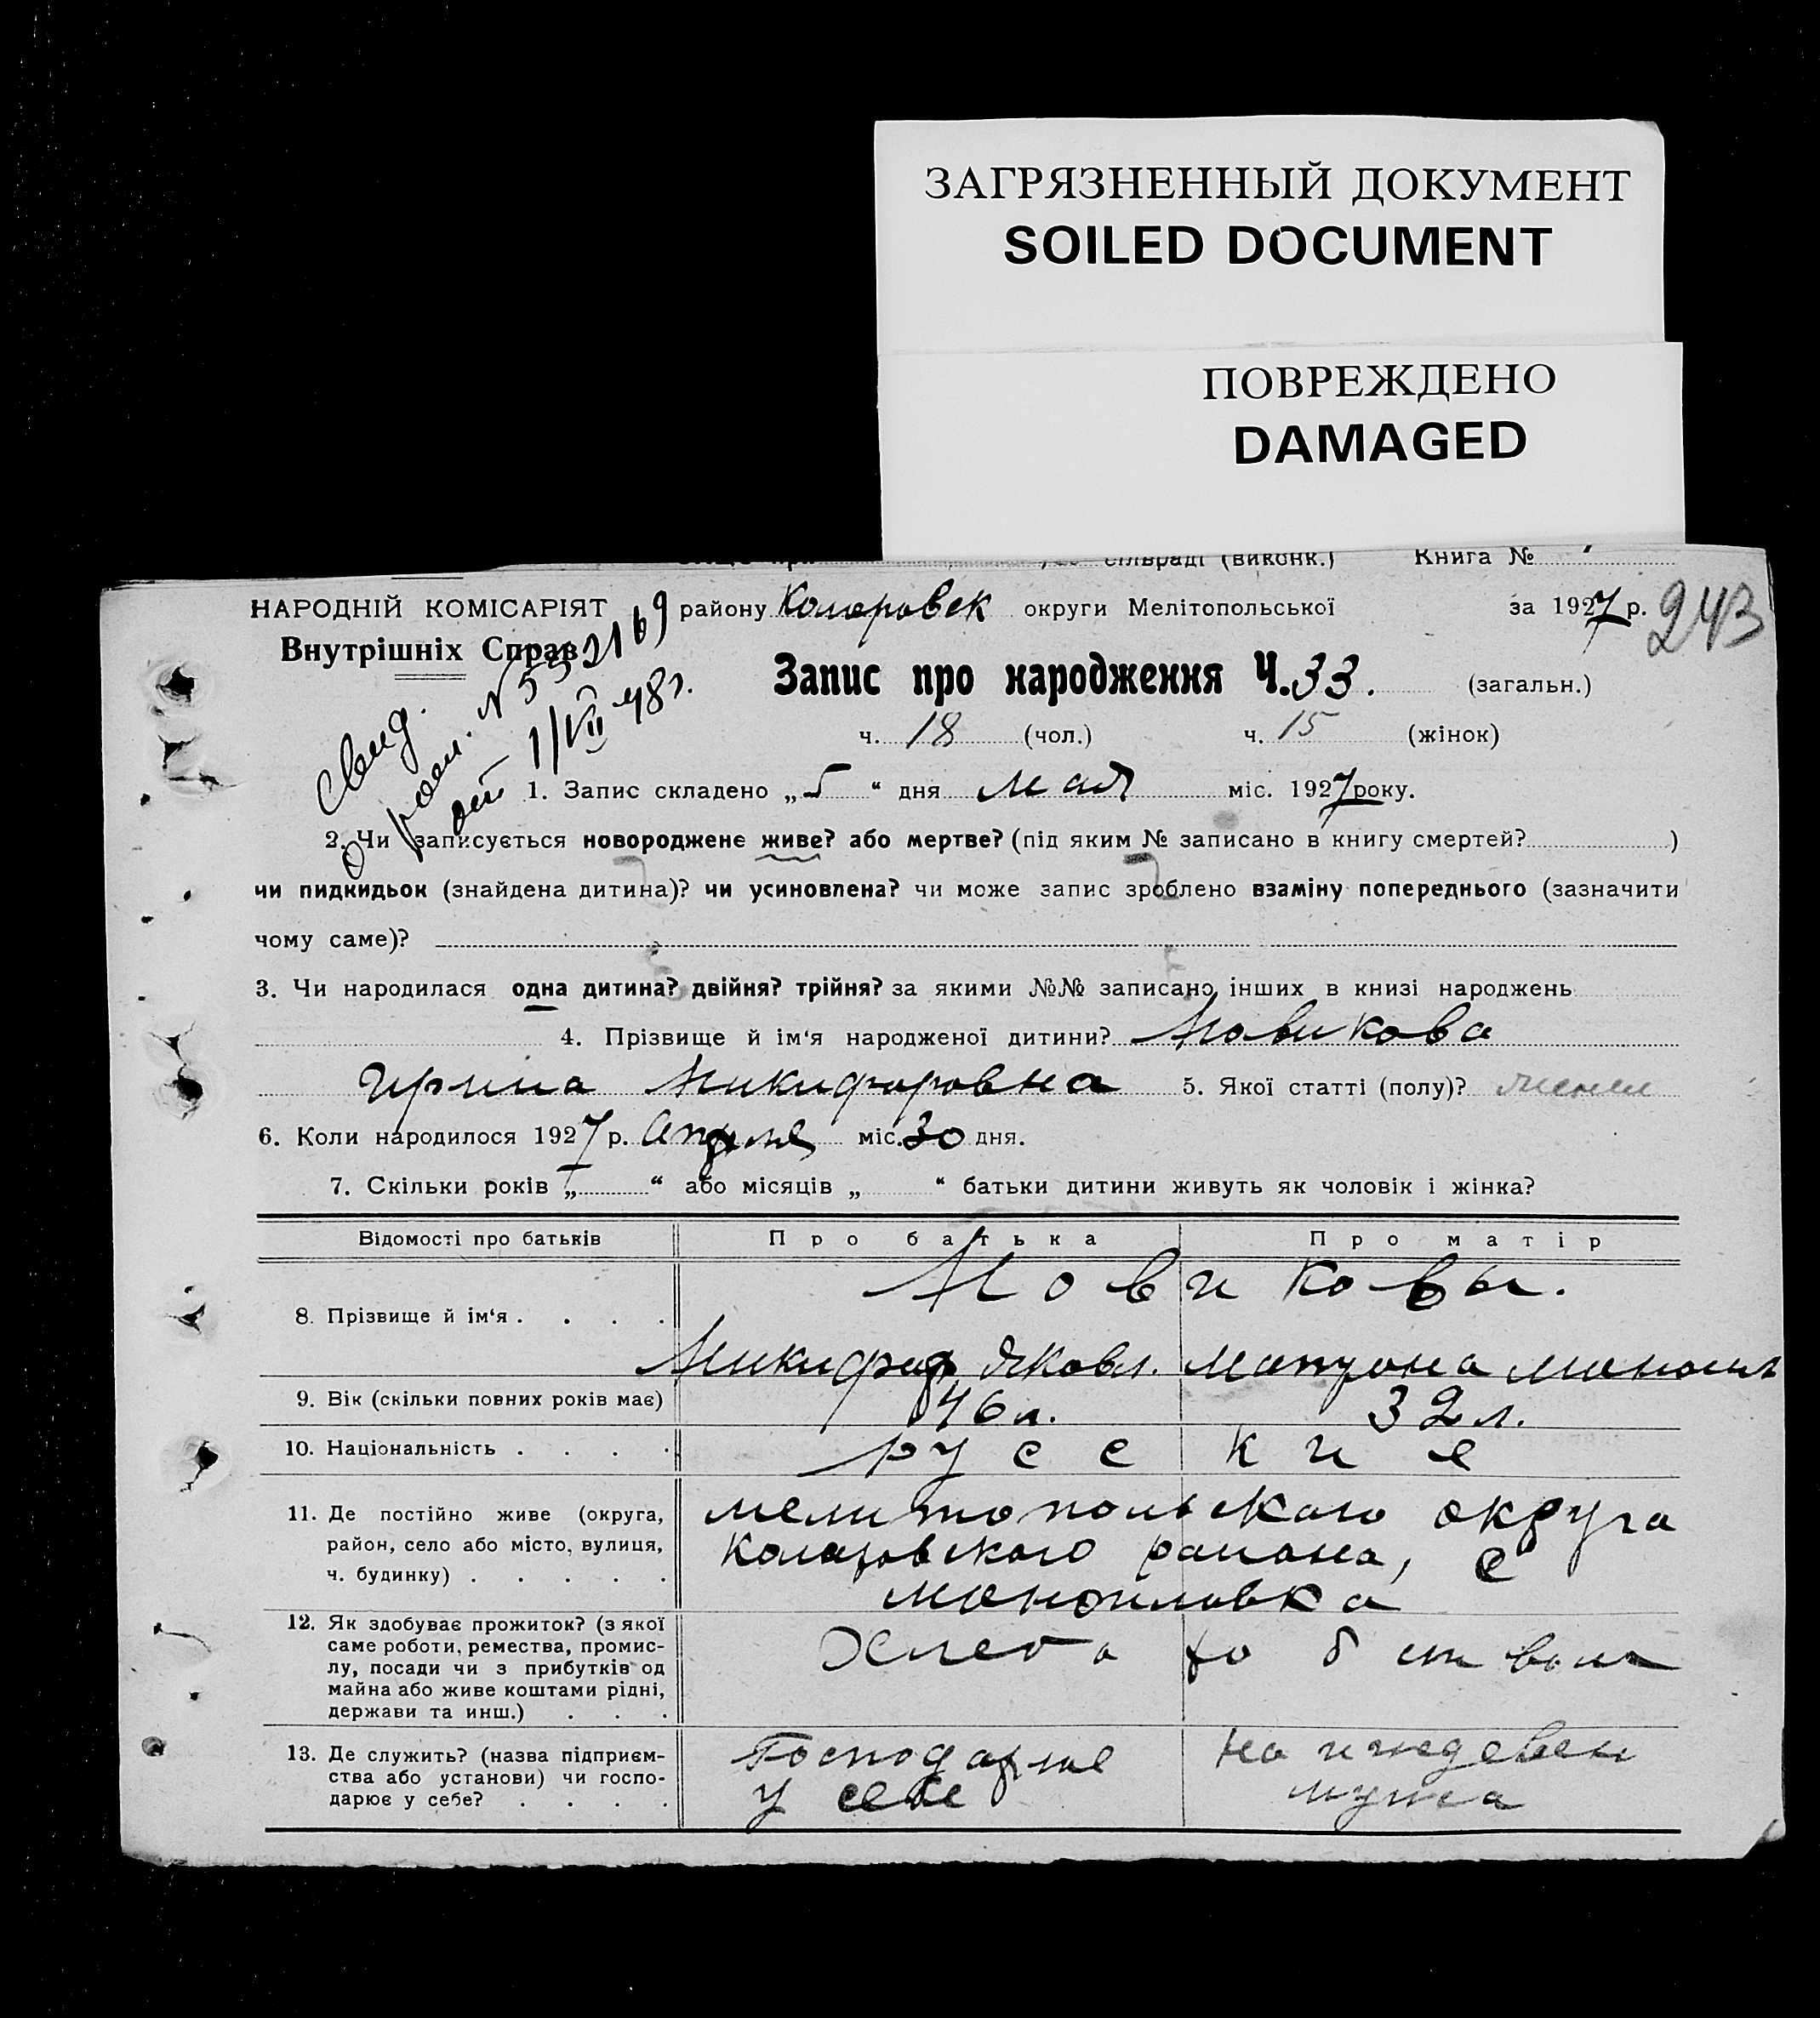 ЗАГРЯЗНЕННЫЙ ДОКУМЕНТ
SOILED DOCUMENT
ПОВРЕЖДЕНО
DAMAGED
сільраді (виконк.) Книга №
НАРОДНІЙ КОМІСАРІЯТ району Коларовск округи Мелітопольської за 1927 р. 243
Внутрішніх Справ
Запис про народження Ч. 33. (загальн.)
ч. 18 (чол.) ч. 15 (жінок)
Свид.
о рожд. №
от 1/VII 48 г.
1. Запис складено „5“ дня мая міс. 1927 року.
2. Чи записується новороджене живе? або мертве? (під яким № записано в книгу смертей? )
чи пидкидьок (знайдена дитина)? чи усиновлена? чи може запис зроблено взаміну попереднього (зазначити
чому саме)?
3. Чи народилася одна дитина? двійня? трійня? за якими №№ записано інших в книзі народжень
4. Прізвище й ім‘я народженої дитини? Новикова
Ирина Никифоровна 5. Якої статті (полу)? женск
6. Коли народилося 1927 р. Апреля міс. 30 дня.
7. Скільки років „ “ або місяців „ “ батьки дитини живуть як чоловік і жінка?
Відомості про батьків Про батька Про матір
8. Прізвище й ім‘я . . . . Новиковы.
Никифор Яковл. Матрона
9. Вік (скільки повних років має) 46 л. 32 л.
10. Національність . . . . русские
11. Де постійно живе (округа, район, село або місто, вулиця, ч. будинку) . . . . .
мелитопольского округа
Коларовского района, с
манойловка
12. Як здобуває прожиток? (з якої саме роботи, ремества, промислу, посади чи з прибутків од майна або живе коштами рідні, держави та инш.) . . .
Хлебо
13. Де служить? (назва підприємства або установи) чи господарює у себе? . . . .
Господарює на иждевен
у себе мужа